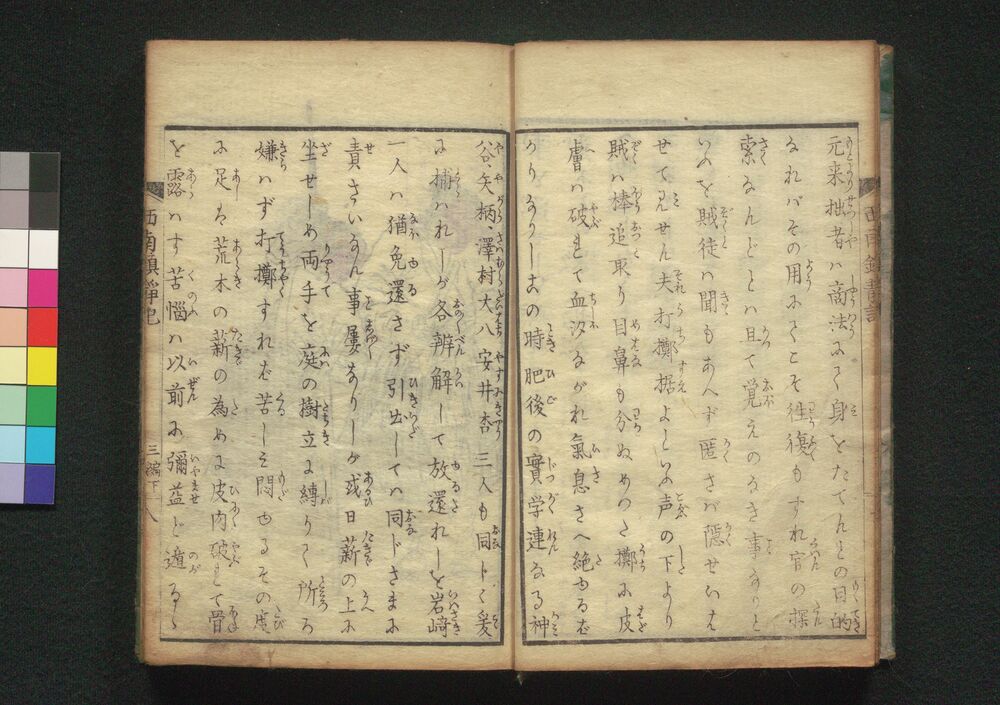 元来拙者ハ商法にて身をたてんとの目的
なれバその用にてこそ往復もすれ官の探
索なんどとハ且て覚えのなき事なりと
いふを賊徒ハ聞もあへず匿さバ隠せいは
せて見せん夫打擲据よといふ声の下より
賊ハ棒追取り目鼻も分ぬめつた擲に皮
膚ハ破れて血汐ながれ氣息さへ絶ゆるば
かりなりし此の時肥後の實学連なる神
谷、矢柄、澤村大八 安井杏 三人も同トく爰
に捕ハれしが各辨解して放還れしを岩﨑
一人ハ猶免還さず引出してハ同トさまに
責さいなん事屡なりしが或日薪の上に
坐せしめ両手を庭の樹立に縛りて所
嫌ハず打擲すれば苦しミ悶ゆるその度
に足は荒木の薪の為めに皮肉破れて骨
を露ハす苦惱ハ以前に彌益と遁るゝ
西南鎮静記
三編下
八